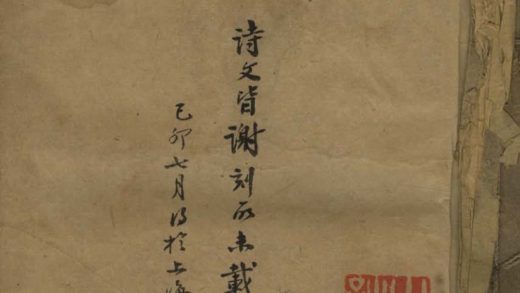 诗文皆谢刻所未载
己卯七月得于上海